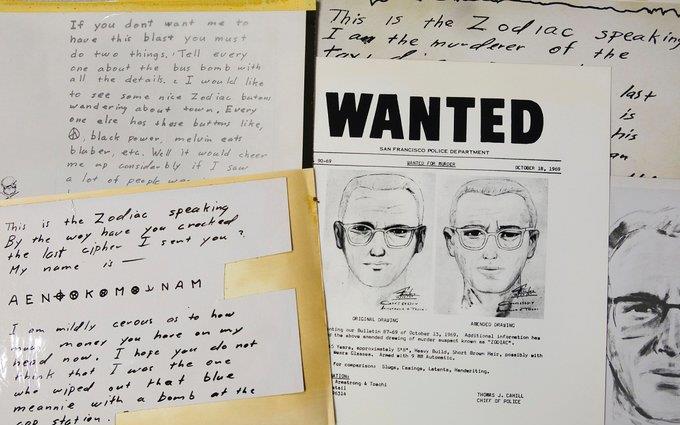 If you dont want me to
have this blast you must
do two things. Tell every
one about the bus bomb with
all the details. I would like
to see some nice Zodiac butons
wandering about town. Every
one else has these buttons like,
☮, black power, melvin eats
bluber, etc. Well it would cheer
me up considerbly if I saw
a lot of people
This is the Zodiac speaking
I am the murderer of the
last
is
his
an
This is the Zodiac speaking
By the way have you cracked
the last cipher I sent you?
My name is —
AEN⊕⊗K⊗M⊗⅃NAM
I am mildly cerous as to how
much money you have on my
head now. I hope you do not
think that I was the one
who wiped out that blue
meannie with a bomb at the
cop station.
WANTED
SAN FRANCISCO POLICE DEPARTMENT
90-69 WANTED FOR MURDER OCTOBER 18, 1969
ORIGINAL DRAWING AMENDED DRAWING
our Bulletin 87-69 of October 13, 1969. Additional information has
the above amended drawing of murder suspect known as "ZODIAC".
Years, approximately 5'8", Heavy Build, Short Brown Hair, possibly with
Wears Glasses. Armed with 9 MM Automatic.
for comparison: Slugs, Casings, Latents, Handwriting.
Armstrong & Toschi
THOMAS J. CAHILL
CHIEF OF POLICE